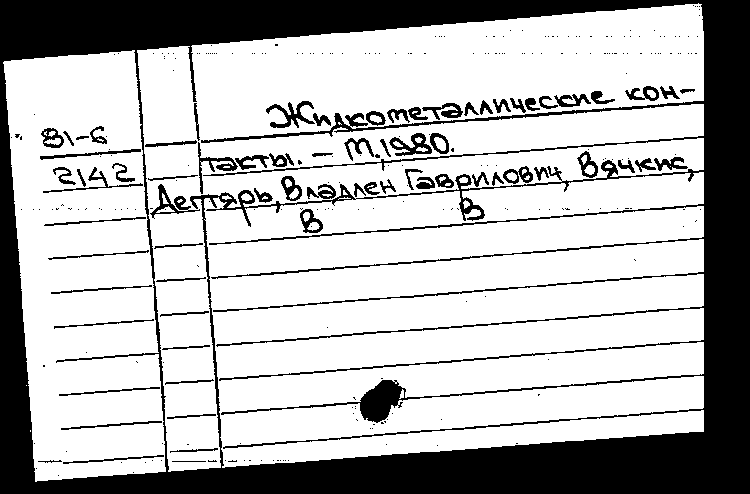 Жидкометаллические кон-
81-6
такты. - М., 1980.
2142
Дегтярь, Владлен Гаврилович, Вячкис,
В В